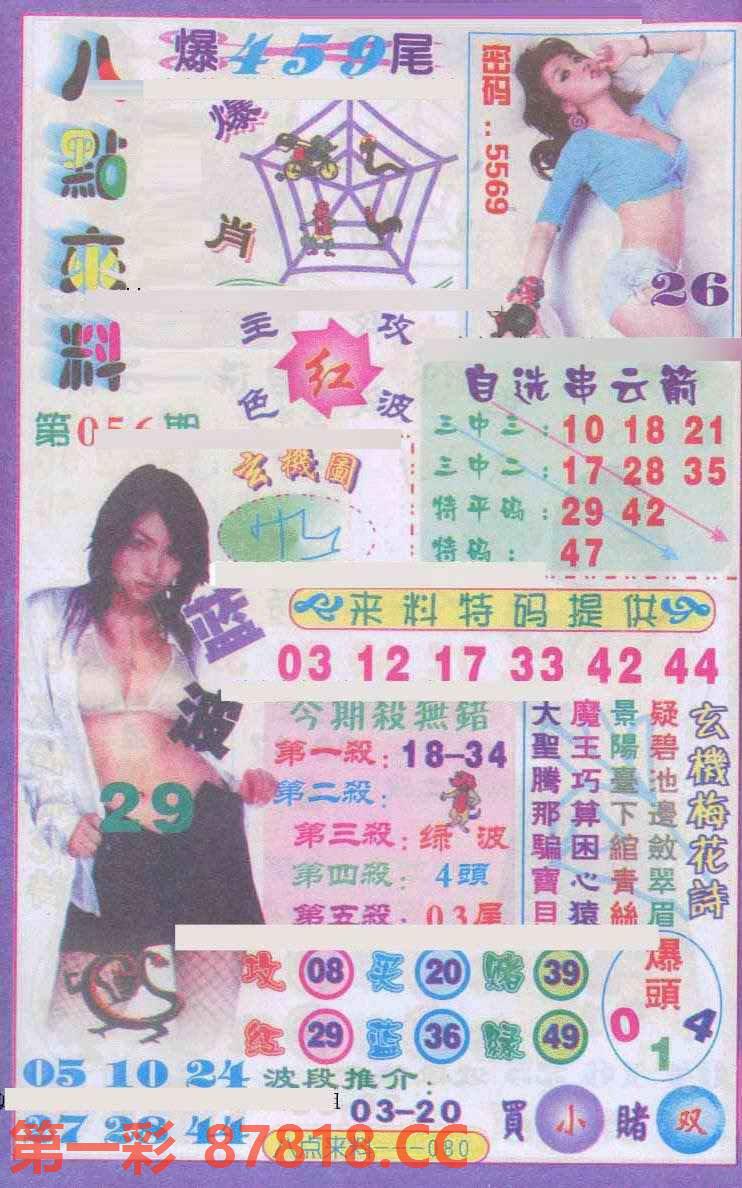 八點來料
爆459尾
爆肖
密码：5569
26
主攻
红
色波
第056期
玄機圖
自选串云箭
三中三：10 18 21
三中二：17 28 35
特平码：29 42
特码：47
来料特码提供
03 12 17 33 42 44
蓝波
29
今期殺無錯
第一殺：18-34
第二殺：
第三殺：绿波
第四殺：4頭
第五殺：03尾
玄機梅花詩
疑碧池邊斂翠眉
景陽臺下綰青絲
魔王巧算困心猿
大聖騰那騙寶貝
攻 08 买 20 赌 39
红 29 蓝 36 绿 49
爆頭
0 1 4
05 10 24
波段推介：
03-20
買 小 賭 双
八点来料——080
第一彩 87818.CC